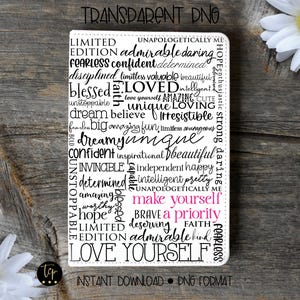 TRANSPARENT PNG
LIMITED
UNAPOLOGETICALLY ME
EDITION admirable daring
fearless confident determined
HOPE
disciplined limitless valuable beautiful
blessed
faith
LOVED
intelligent
unstoppable
love yourself AMAZING CUTE
unique LOVING
dream believe
irresistible
big
fun limitless
strong
daring
dreamy unique
confident inspirational beautiful
INVINCIBLE
independent happy
determined
capable
intelligent pretty
UNSTOPPABLE
amazing
UNAPOLOGETICALLY ME
worthy
blessed
make yourself
hope
BRAVE a priority
LIMITED
deserving
FAITH
EDITION admirable kind
FEARLESS
LOVE YOURSELF
INSTANT DOWNLOAD • PNG FORMAT